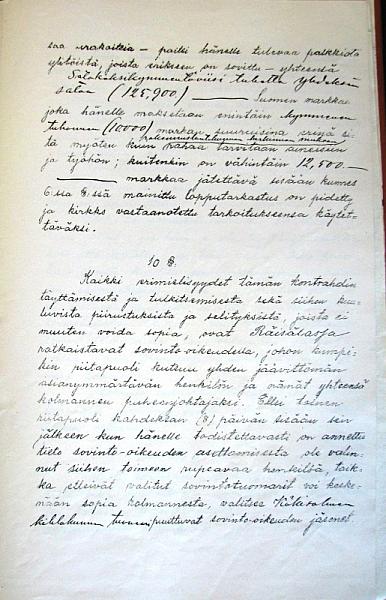 saa urakoitsia - paitsi hänelle tulevaa palkkiota
ylitöistä, joista erikseen on sovittu - yhteensä
Satakaksikymmentäviisi tuhatta yhdeksän
sataa (125,900.) Suomen markkaa
joka hänelle maksetaan enintäin kymmenen
tuhannen (10000) markan suuruisina erinä si-
tä myöten kuin rahaa tarvitaan aineisiin
ja työhön; kuitenkin on vähintäin 12,500.-
markkaa jätettävä sisään kunnes
6:ssa §:ssä mainittu lopputarkastus on pidetty
ja kirkko vastaanotettu tarkoitukseensa käytet-
täväksi.
10 §.
Kaikki erimielisyydet tämän kontrahdin
täyttämisestä ja tulkitsemisesta sekä siihen kuu-
luvista piirustuksista ja selityksistä, joista ei
muuten voida sopia, ovat Räisälässä
ratkaistavat sovinto-oikeudella, johon kumpi-
kin riitapuoli kutsuu yhden jäävittömän
asianymmärtävän henkilön ja nämät yhteensä
kolmannen puheenjohtajaksi. Ellei toinen
riitapuoli kahdeksan (8) päivän sisään sen
jälkeen kun hänelle todistettavasti on annettu
tieto sovinto-oikeuden asettamisesta ole valin-
nut siihen toimeen rupeavaa henkilöä, taik-
ka elleivät valitut sovintotuomarit voi keske-
nään sopia kolmannesta, valitsee Käkisalmen
kihlakunnan puuttuvat sovinto-oikeuden jäsenet.